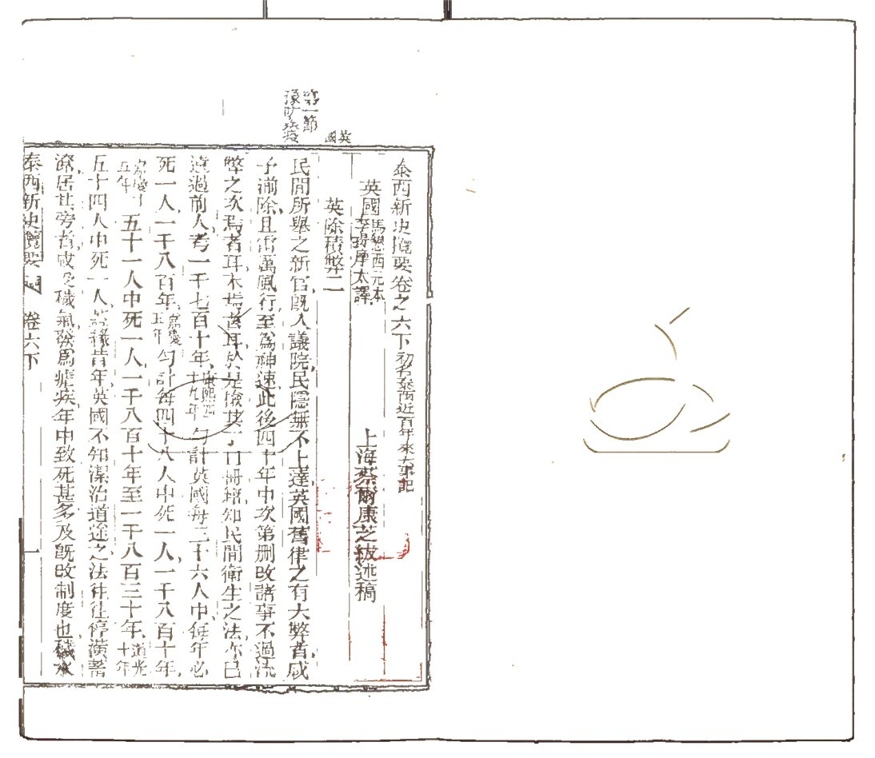 泰西新史攬要卷之六下 初名泰西近百年來大事記
英國 馬懇西元本 李提摩太譯
上海蔡爾康芝紱述稿
英除積弊二
英國
第一節
民間所舉之新官旣入議院民隱無不上達英國舊律之有大弊者咸
予湔除且雷萬風行至為神速此後四十年中次第刪改諸事不過流
弊之次焉者耳
民間衛生之法亦已
遠過前人考一千七百十年 康熙四十九年 勻計英國每三十六人中每年必
死一人一千八百年 嘉慶五年 勻計每四十八人中死一人一千八百十年
五十一人中死一人一千八百十年至一千八百三十年 道光十年
五十四人中死一人蓋緣昔年英國不知潔治道途之法往往停潢蓄
潦居其旁者或受穢氣發為瘧疾年中致死甚多及旣改制度也穢水
泰西新史攬要
卷六下
一